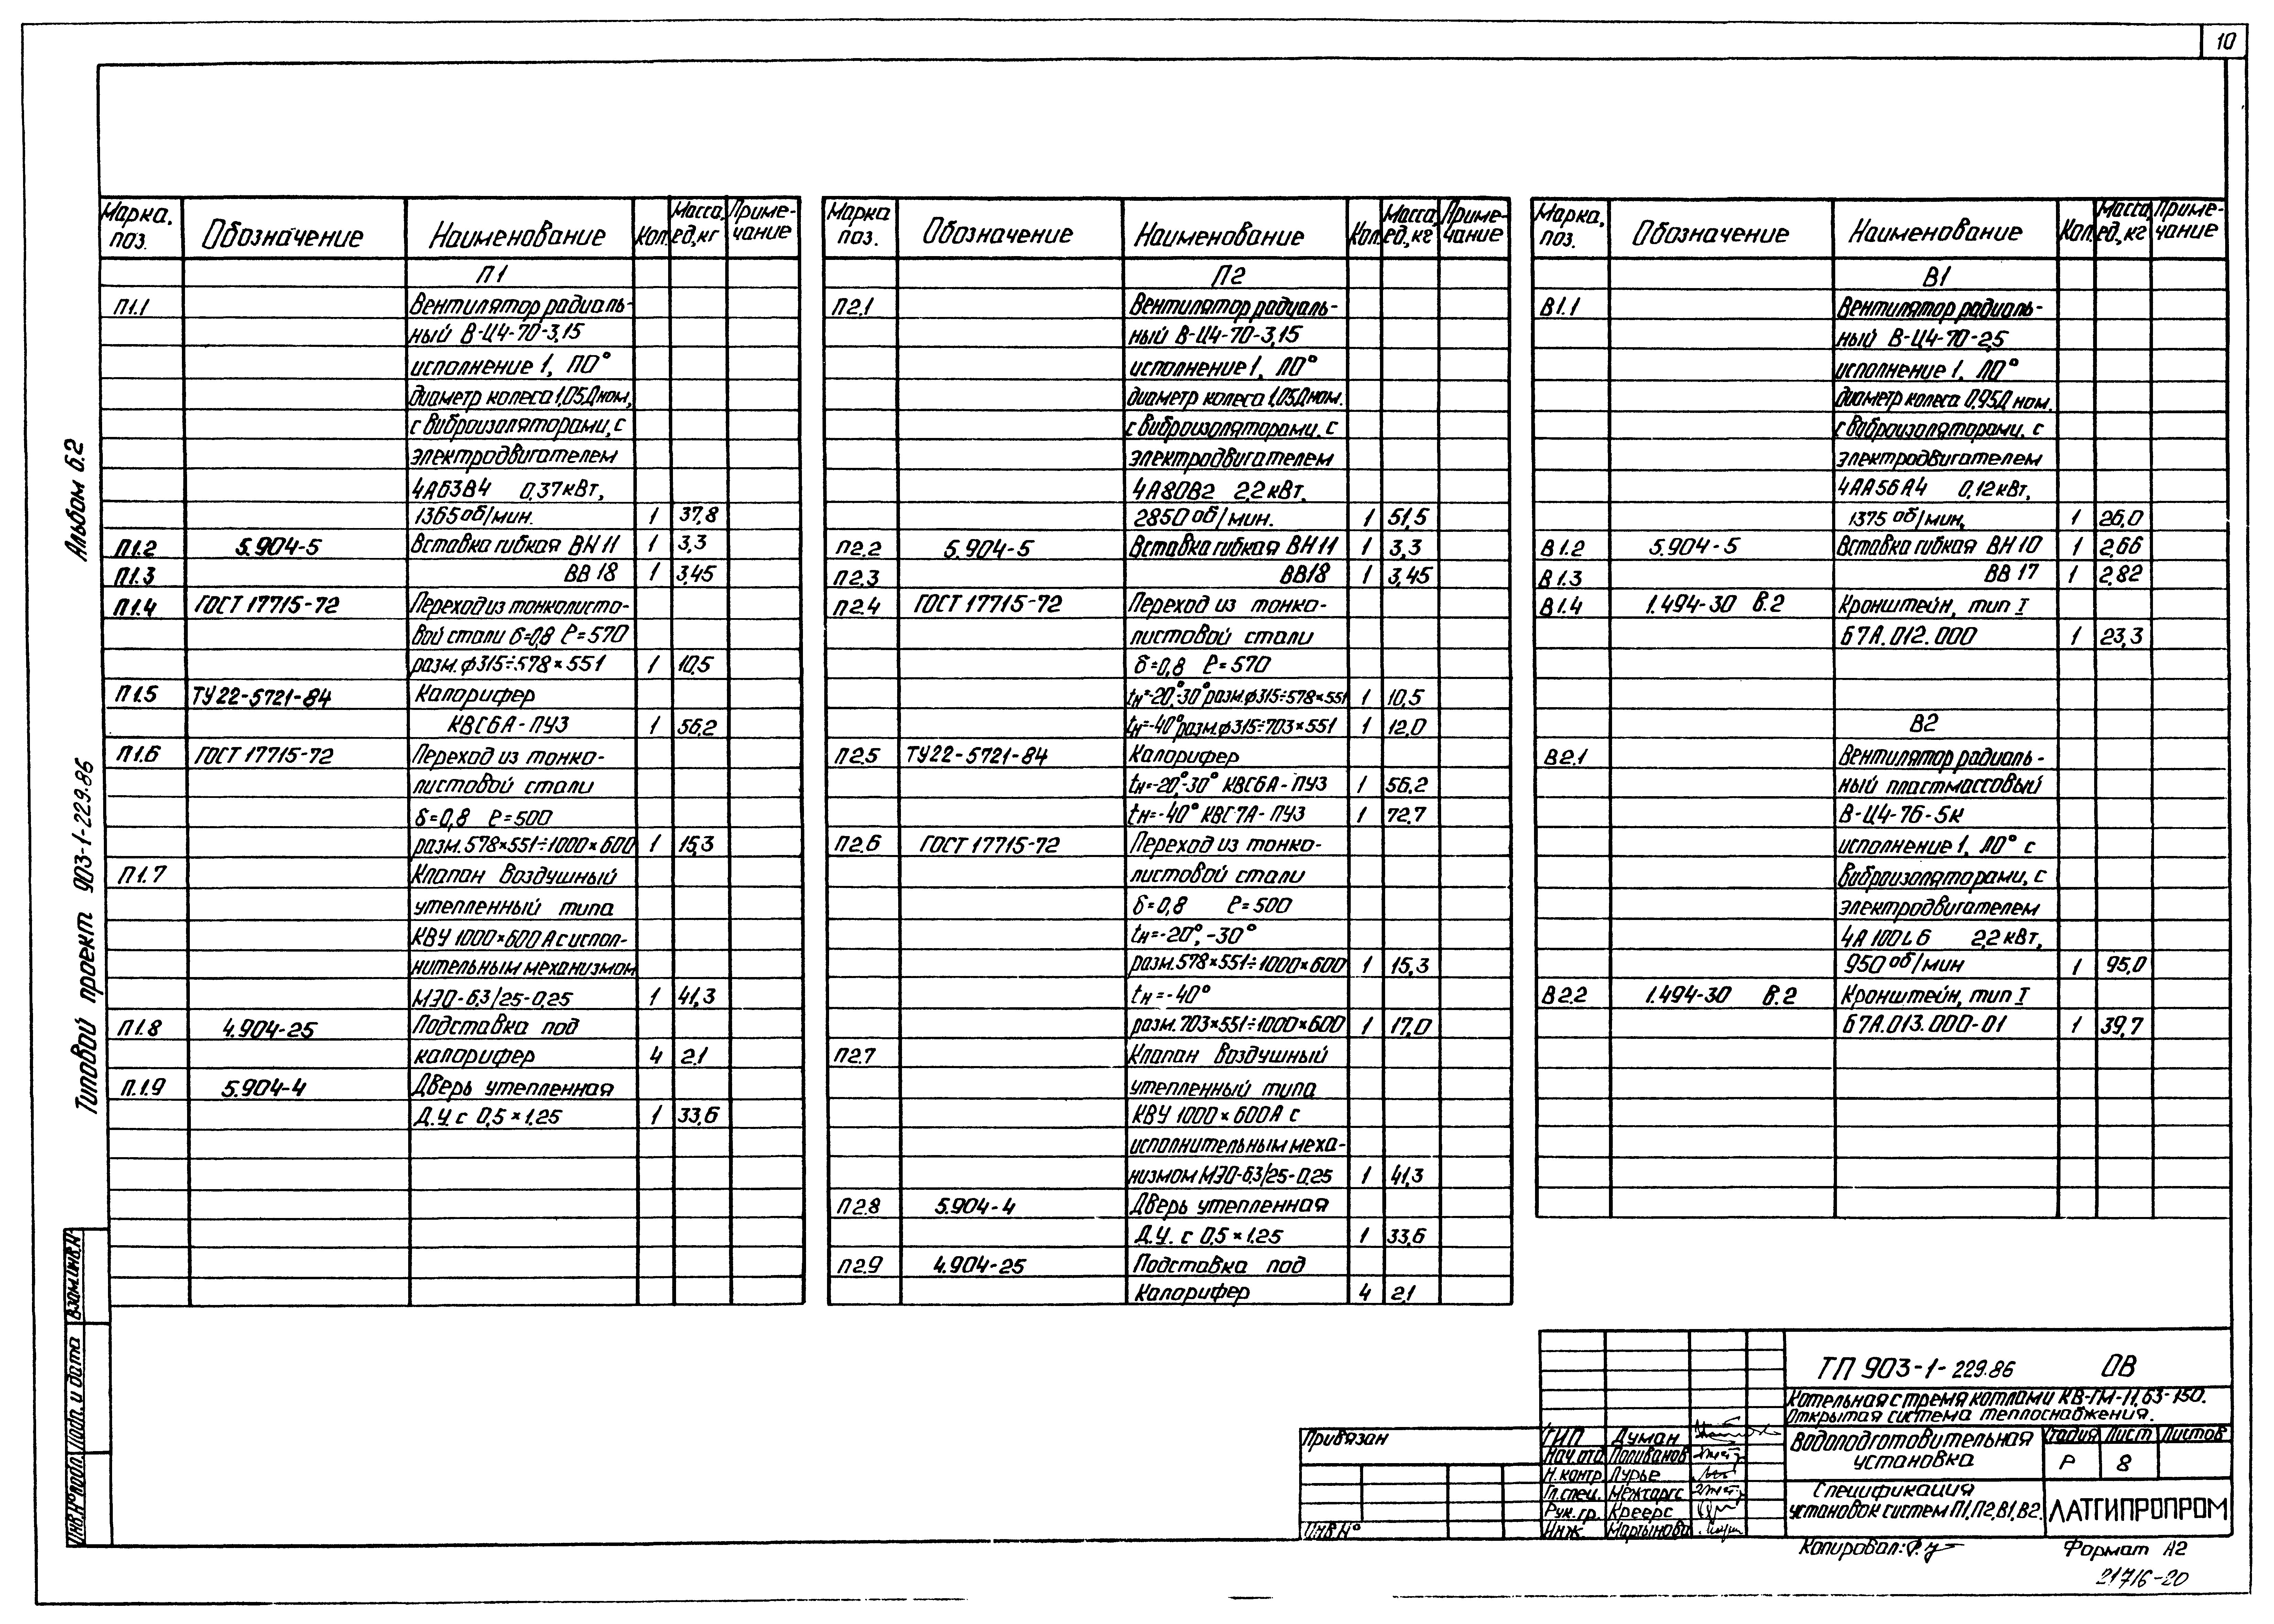 10
Альбом 6.2
Типовой проект 903-1-229.86
Взам.инв.№
Подп. и дата
Инв.№ подл.
Марка, поз. Обозначение Наименование Кол. Масса ед., кг Приме-чание
П1
П1.1 Вентилятор радиаль-
ный В-Ц4-70-3,15
исполнение 1, П0°
диаметр колеса 1,05Дном,
с виброизоляторами, с
электродвигателем
4А63В4 0,37кВт,
1365 об/мин. 1 37,8
П1.2 5.904-5 Вставка гибкая ВН11 1 3,3
П1.3 ВВ18 1 3,45
П1.4 ГОСТ 17715-72 Переход из тонколисто-
вой стали δ=0,8 ℓ=570
разм. ф315÷578×551 1 10,5
П1.5 ТУ22-5721-84 Калорифер
КВС6А-ПУЗ 1 56,2
П1.6 ГОСТ 17715-72 Переход из тонко-
листовой стали
δ=0,8 ℓ=500
разм. 578×551÷1000×600 1 15,3
П1.7 Клапан воздушный
утепленный типа
КВУ 1000×600 А с испол-
нительным механизмом
МЭО-6,3/25-0,25 1 41,3
П1.8 4.904-25 Подставка под
калорифер 4 2,1
П.1.9 5.904-4 Дверь утепленная
Д.У. с 0,5×1,25 1 33,6
Марка поз. Обозначение Наименование Кол. Масса ед., кг Приме-чание
П2
П2.1 Вентилятор радиаль-
ный В-Ц4-70-3,15
исполнение 1, Л0°
диаметр колеса 1,05Дном.
с виброизоляторами, с
электродвигателем
4А80В2 2,2 кВт,
2850 об/мин. 1 51,5
П2.2 5.904-5 Вставка гибкая ВН11 1 3,3
П2.3 ВВ18 1 3,45
П2.4 ГОСТ 17715-72 Переход из тонко-
листовой стали
δ=0,8 ℓ=570
tн=-20°,-30° разм. ф315÷578×551 1 10,5
tн=-40° разм. ф315÷703×551 1 12,0
П2.5 ТУ22-5721-84 Калорифер
tн=-20°,-30° КВС6А-ПУЗ 1 56,2
tн=-40° КВС7А-ПУЗ 1 72,7
П2.6 ГОСТ 17715-72 Переход из тонко-
листовой стали
δ=0,8 ℓ=500
tн=-20°, -30°
разм. 578×551÷1000×600 1 15,3
tн=-40°
разм. 703×551÷1000×600 1 17,0
П2.7 Клапан воздушный
утепленный типа
КВУ 1000×600А с
исполнительным меха-
низмом МЭО-6,3/25-0,25 1 41,3
П2.8 5.904-4 Дверь утепленная
Д.У. с 0,5×1,25 1 33,6
П2.9 4.904-25 Подставка под
калорифер 4 2,1
Марка, поз. Обозначение Наименование Кол. Масса ед., кг Приме-чание
В1
В1.1 Вентилятор радиаль-
ный В-Ц4-70-2,5
исполнение 1, Л0°
диаметр колеса 0,95Д ном.
с виброизоляторами, с
электродвигателем
4АА56А4 0,12 кВт,
1375 об/мин, 1 26,0
В1.2 5.904-5 Вставка гибкая ВН10 1 2,66
В1.3 ВВ 17 1 2,82
В1.4 1.494-30 В.2 Кронштейн, тип I
Б7А.012.000 1 23,3
В2
В2.1 Вентилятор радиаль-
ный пластмассовый
В-Ц4-76-5к
исполнение 1, Л0° с
виброизоляторами, с
электродвигателем
4А100L6 2,2 кВт,
950 об/мин 1 95,0
В2.2 1.494-30 В.2 Кронштейн, тип I
Б7А.013.000-01 1 39,7
ТП 903-1-229.86 ОВ
Котельная с тремя котлами КВ-ГМ-11,63-150.
Открытая система теплоснабжения.
Привязан
Инв.№
ГИП Думан
Нач.отд Поливанов
Н.контр. Лурье
Гл.спец.
Рук.гр. Креерс
Инж. Мартынова
Водоподготовительная установка
Стадия Лист Листов
Р 8
Спецификация
установок систем П1,П2,В1,В2.
ЛАТГИПРОПРОМ
Копировал:
Формат А2
21716-20